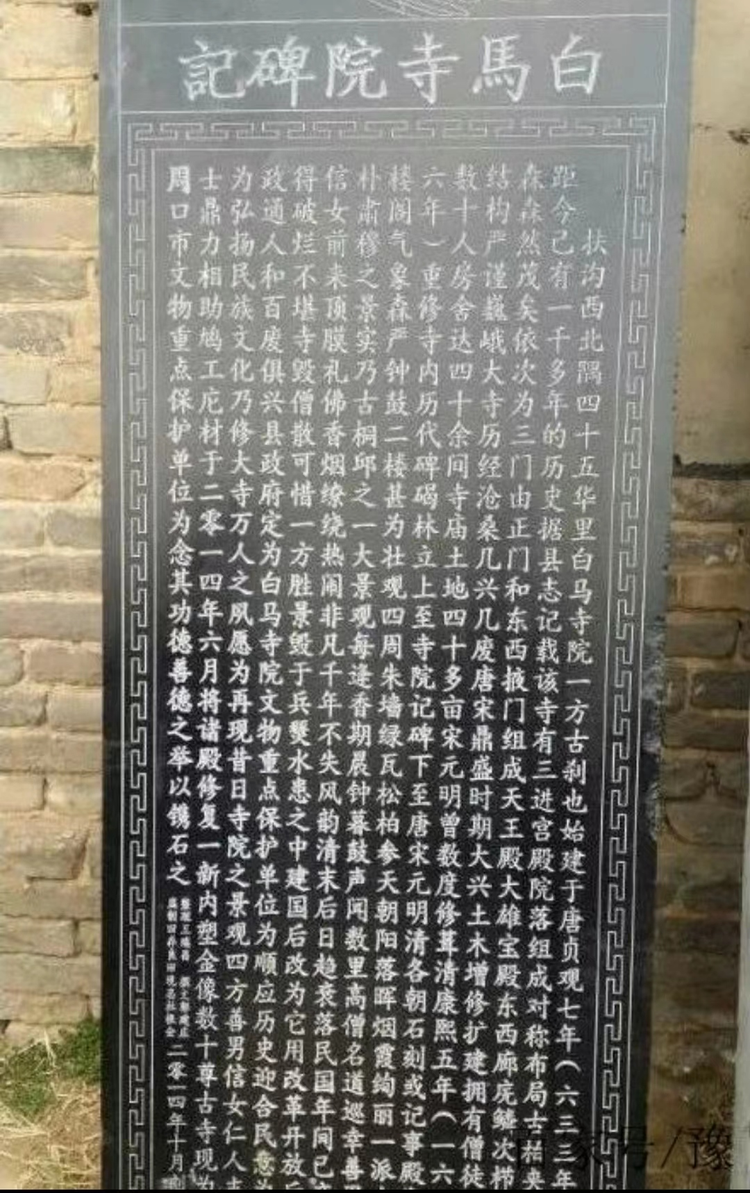 白馬寺院碑記
扶沟西北隅四十五华里白马寺院一方古刹也始建于唐贞观七年（六三三年
距今己有一千多年的历史据县志记载该寺有三进宫殿院落组成对称布局古柏夹
森森然茂矣依次为三门由正门和东西掖门组成天王殿大雄宝殿东西廊庑鳞次栉
结构严谨巍峨大寺历经沧桑几兴几废唐宋鼎盛时期大兴土木增修扩建拥有僧徒
数十人房舍达四十余间寺庙土地四十多亩宋元明曾数度修葺清康熙五年（一六
六年）重修寺内历代碑碣林立上至寺院记碑下至唐宋元明清各朝石刻或记事殿
楼阁气象森严钟鼓二楼甚为壮观四周朱墙绿瓦松柏参天朝阳落晖烟霞绚丽一派
朴肃穆之景实乃古桐邱之一大景观每逢香期晨钟暮鼓声闻数里高僧名道巡幸善
信女前来顶膜礼佛香烟缭绕热闹非凡千年不失风韵清末后日趋衰落民国年间已
得破烂不堪寺毁僧散可惜一方胜景毁于兵燹水患之中建国后改为它用改革开放
政通人和百废俱兴县政府定为白马寺院文物重点保护单位为顺应历史迎合民意
为弘扬民族文化乃修大寺万人之夙愿为再现昔日寺院之景观四方善男信女仁人
士鼎力相助鸠工庀材于二零一四年六月将诸殿修复一新内塑金像数十尊古寺现为
周口市文物重点保护单位为念其功德善德之举以镌石之
二零一四年十月